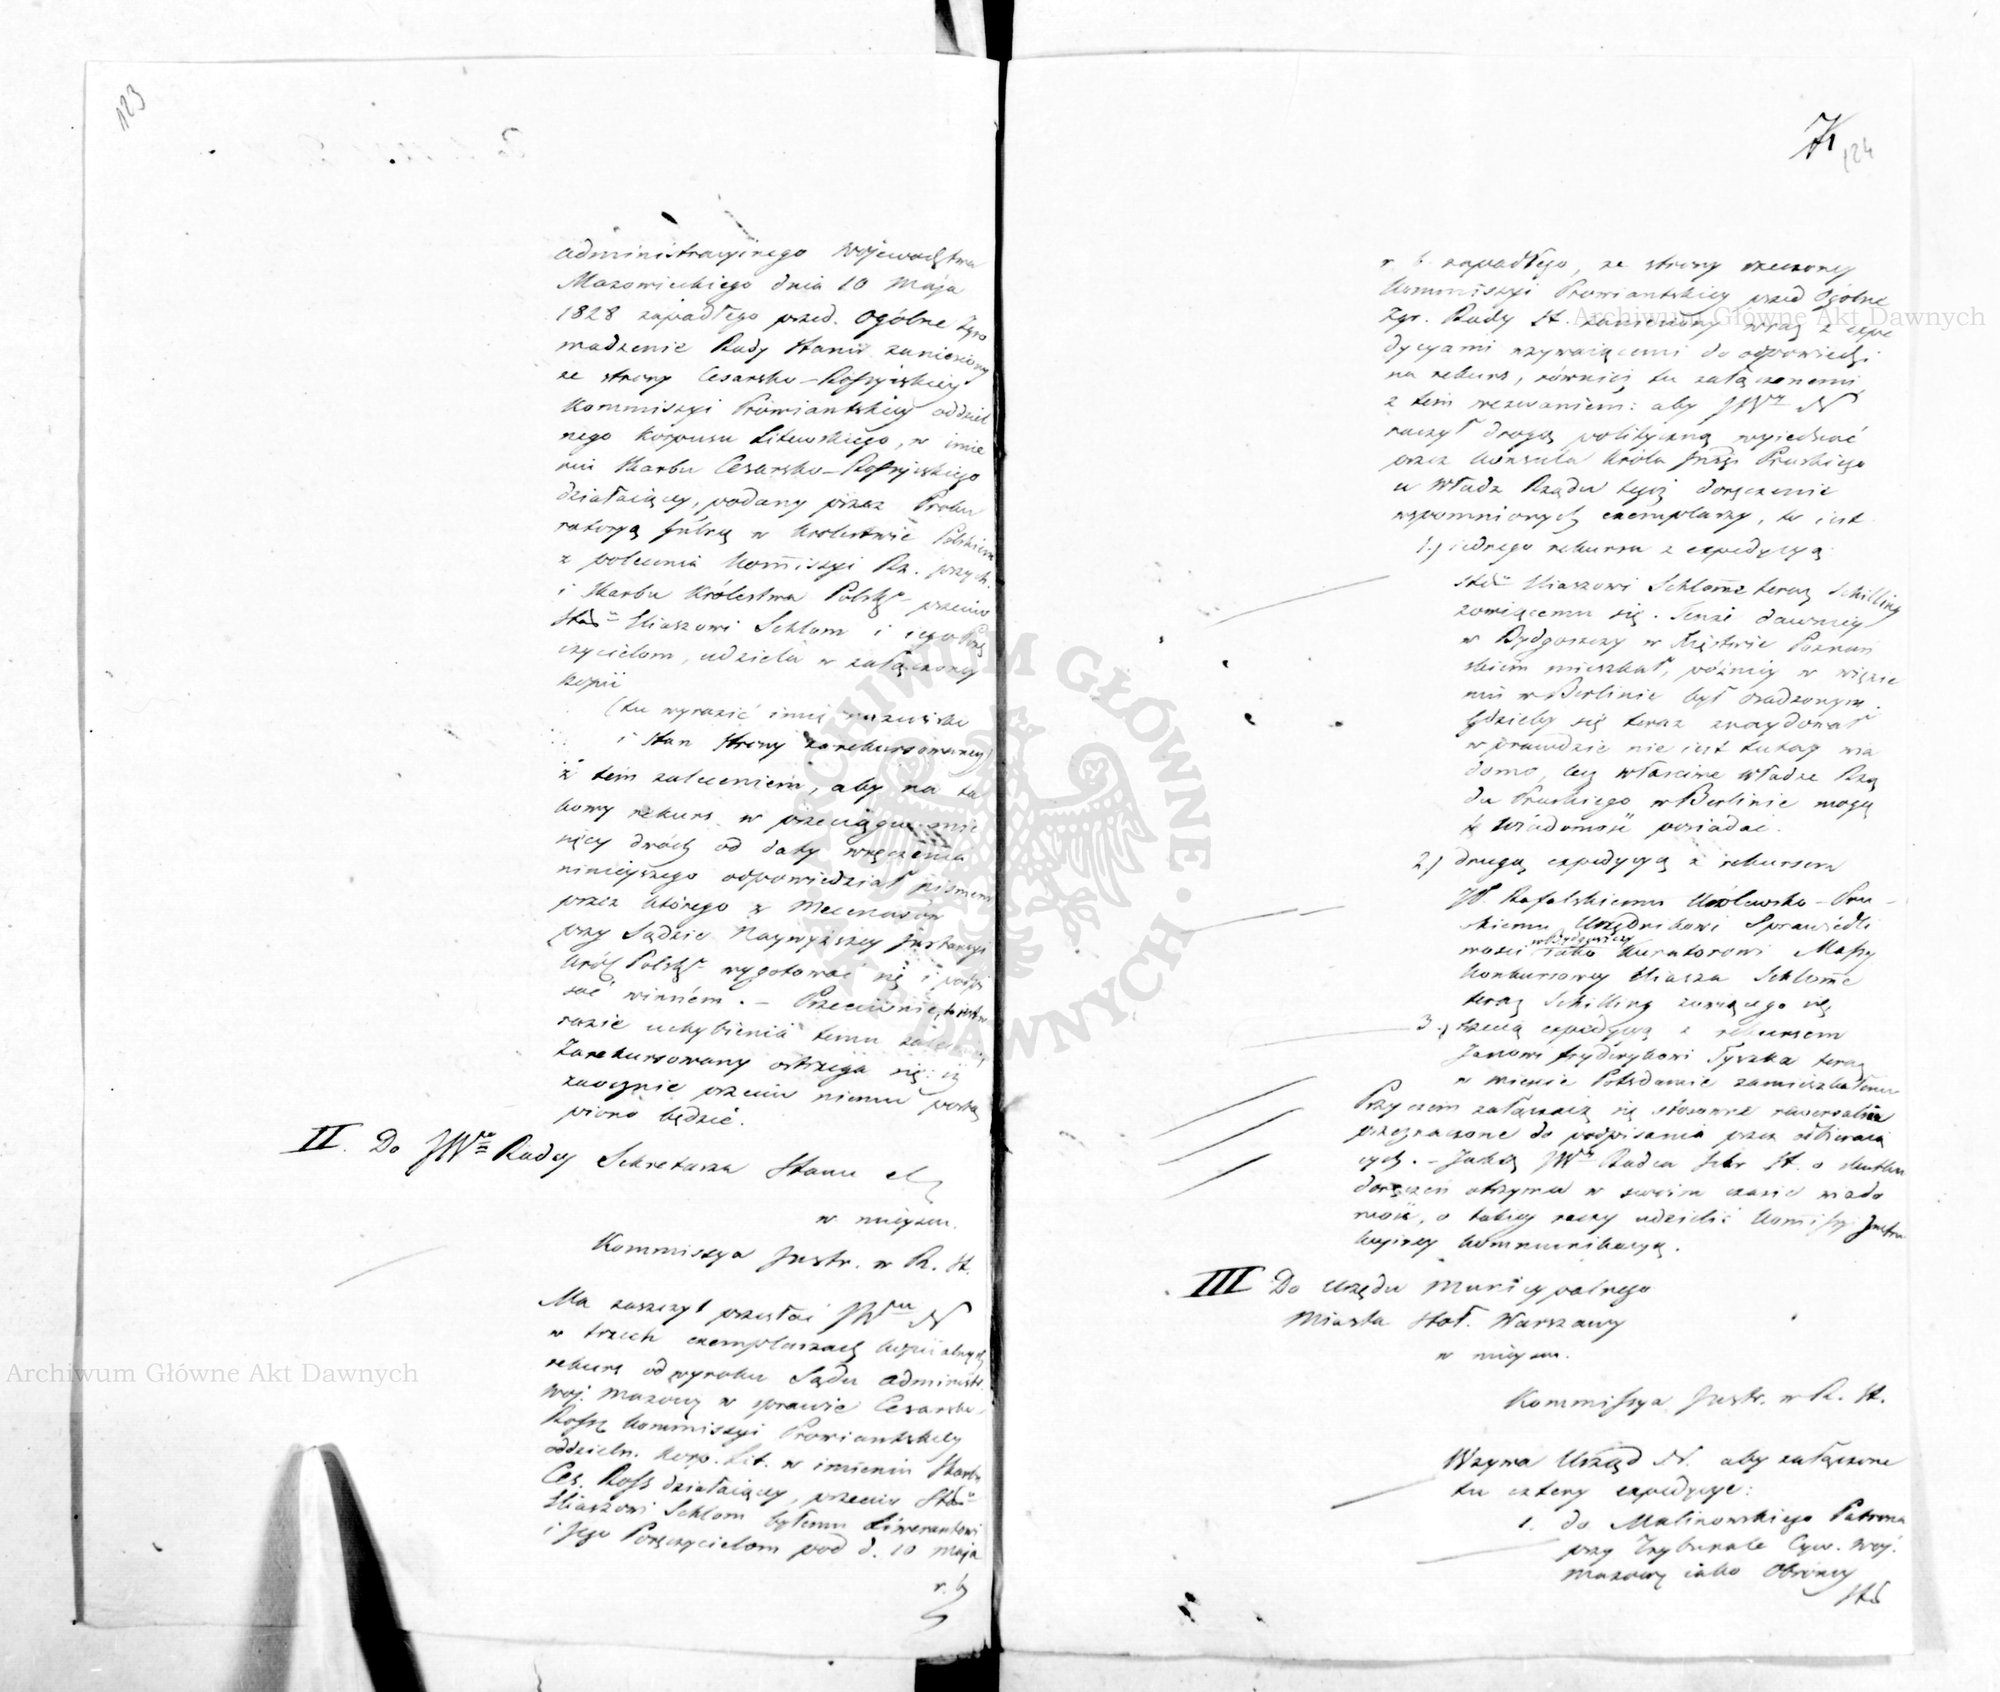 123
administracyinego Wojewodztwa
Mazowieckiego dnia 10 Maja
1828 zapadłego przed. Ogólne Zgro
madzenie Rady Stanu zaniesiony
ze strony Cesarsko-Rossyiskiey
Kommissyi Prowiantskiey oddziel
nego Korpusu Litewskiego, w imie
niu Skarbu Cesarsko-Rossyiskiego
działaiącey, podany przez Proku
ratoryą Jńlną w Królestwie Polskiem
z polecenia Kommissyi Rz. przych.
i Skarbu Królestwa Polskº przeciw
Eliaszowi Schlom i iego Porę
czycielom, udziela w załączoney
kopii
(tu wyrazić imię nazwisko
i stan strony zarekursowaney)
z tem zaleceniem, aby na ta
kowy rekurs w przeciągu mie
sięcy dwóch od daty wręczenia
ninieyszego odpowiedział pismem
przez którego z Mecenasów
przy Sądzie Naywyższey Instancyi
Król. Polskº wygotować się i podpi
sać winnem. – Przeciwnie,
razie uchybienia temu
Zarekursowany ostrzega się: iż
zaocznie przeciw niemu postą
piono będzie.
II. Do JWº Radcy Sekretarza Stanu
w mieyscu.
Kommissya Instr. w R. St.
Ma zaszczyt przesłać JWmu N
w trzech exemplarzach kopiialnych
rekurs od wyroku Sądu Administr.
Woj. Mazow. w sprawie Cesarsko-
Ross. Kommissyi Prowiantskiey
oddzieln. Korp. Lit. w imieniu Skarbu
Ces. Ross działaiącey, przeciw
Eliaszowi Schlom byłemu Liwerantowi
i Jego Poręczycielom pod d. 10 Maja
r. b.
124
r. b. zapadłego, ze strony rzeczoney
Kommissyi Prowiantskiey przed Ogólne
Zgr. Rady St. zaniesiony wraz z expe
dycyami wzywaiącemi do odpowiedzi
na rekurs, równieź tu załączonemi
z tem wezwaniem: aby JWy N
raczył drogą polityczną wyiednać
przez Konsula Króla Jmści Pruskiego
u Władz Rządu tegoż doręczenie
wspomnionych exemplarzy, to iest
1.) iednego rekursu z expedycyą
Eliaszowi Schlome teraz Schilling
zowiącemu się. Tenże dawniey
w Bydgoszczy w Xięstwie Poznań
skiem mieszkał, późniey w więzie
niu w Berlinie był osadzonym.
Gdzieby się teraz znaydował
wprawdzie nie iest tutay wia
domo, lecz właściwe Władze Rzą
du Pruskiego w Berlinie mogą
tę wiadomość posiadać.
2) drugą expedycyą z rekursem
JP. Rafalskiemu Królewsko-Pru-
skiemu Urzędnikowi Sprawiedli
wości w Bydgoszczy iako Kuratorowi Massy
Konkursowey Eliasza Schlome
teraz Schilling zowiącego się
3.) trzecią expedycyą z rekursem
Janowi Frydrykowi Tyszka teraz
w mieście Potsdamie zamieszkałemu
Przyczem załączaią się stosowne rewersalia
przeznaczone do podpisania przez odbieraią
cych. – Jaką JWy Radca Sekr St. o skutku
doręczeń otrzyma w swoim czasie wiado
mość, o takiey raczy udzielić Kommissyi Instru
kcyiney kommunikacyą.
III Do Urzędu Municypalnego
Miasta Stoł. Warszawy
w mieyscu.
Kommissya Instr. w R. St.
Wzywa Urząd N. aby załączone
tu cztery expedycye:
1. do Malinowskiego Patrona
przy Trybunale Cyw. Woj.
Mazow. iako Obrońcy
Archiwum Główne Akt Dawnych
Archiwum Główne Akt Dawnych
ARCHIWUM GŁÓWNE AKT DAWNYCH